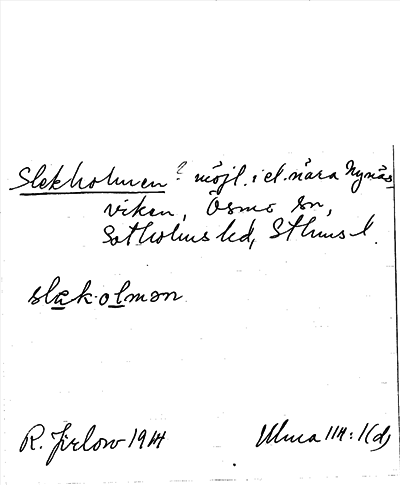 Slekholmen? möjl. i el. nära Nynäs-
viken, Ösmo sn,
Sotholms hd, Sthms l.
slek·olmən
R. Jirlow 1914
Ulma 114:1(d)